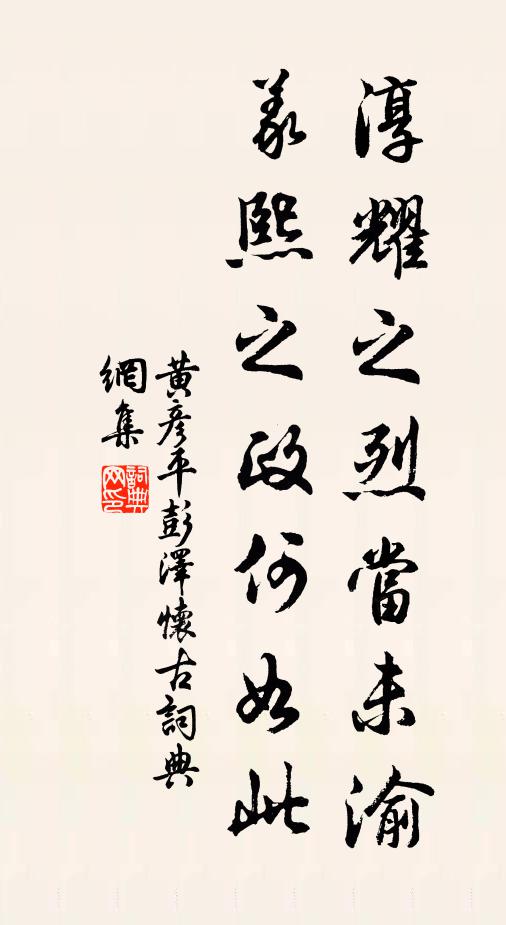 淳耀之烈當未渝
羲熙之政何如此
黃彥平彭澤懷古詞典
網集
詞典
网印